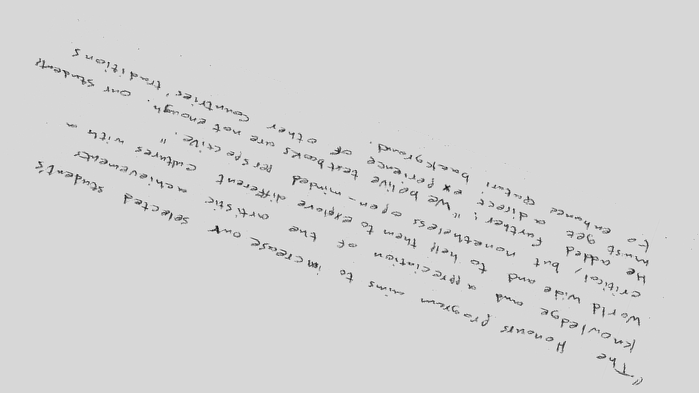 "The Honours Program aims to increase our selected student's
knowledge and appreciation of the artistic achievements
World wide and to help them to explore different cultures with a
critical, but nonetheless open-minded perspecrive."
He added further: "We belive testbooks are not enough. our students
must get a direct experience of other countries' traditions
to enhance Qatari background.